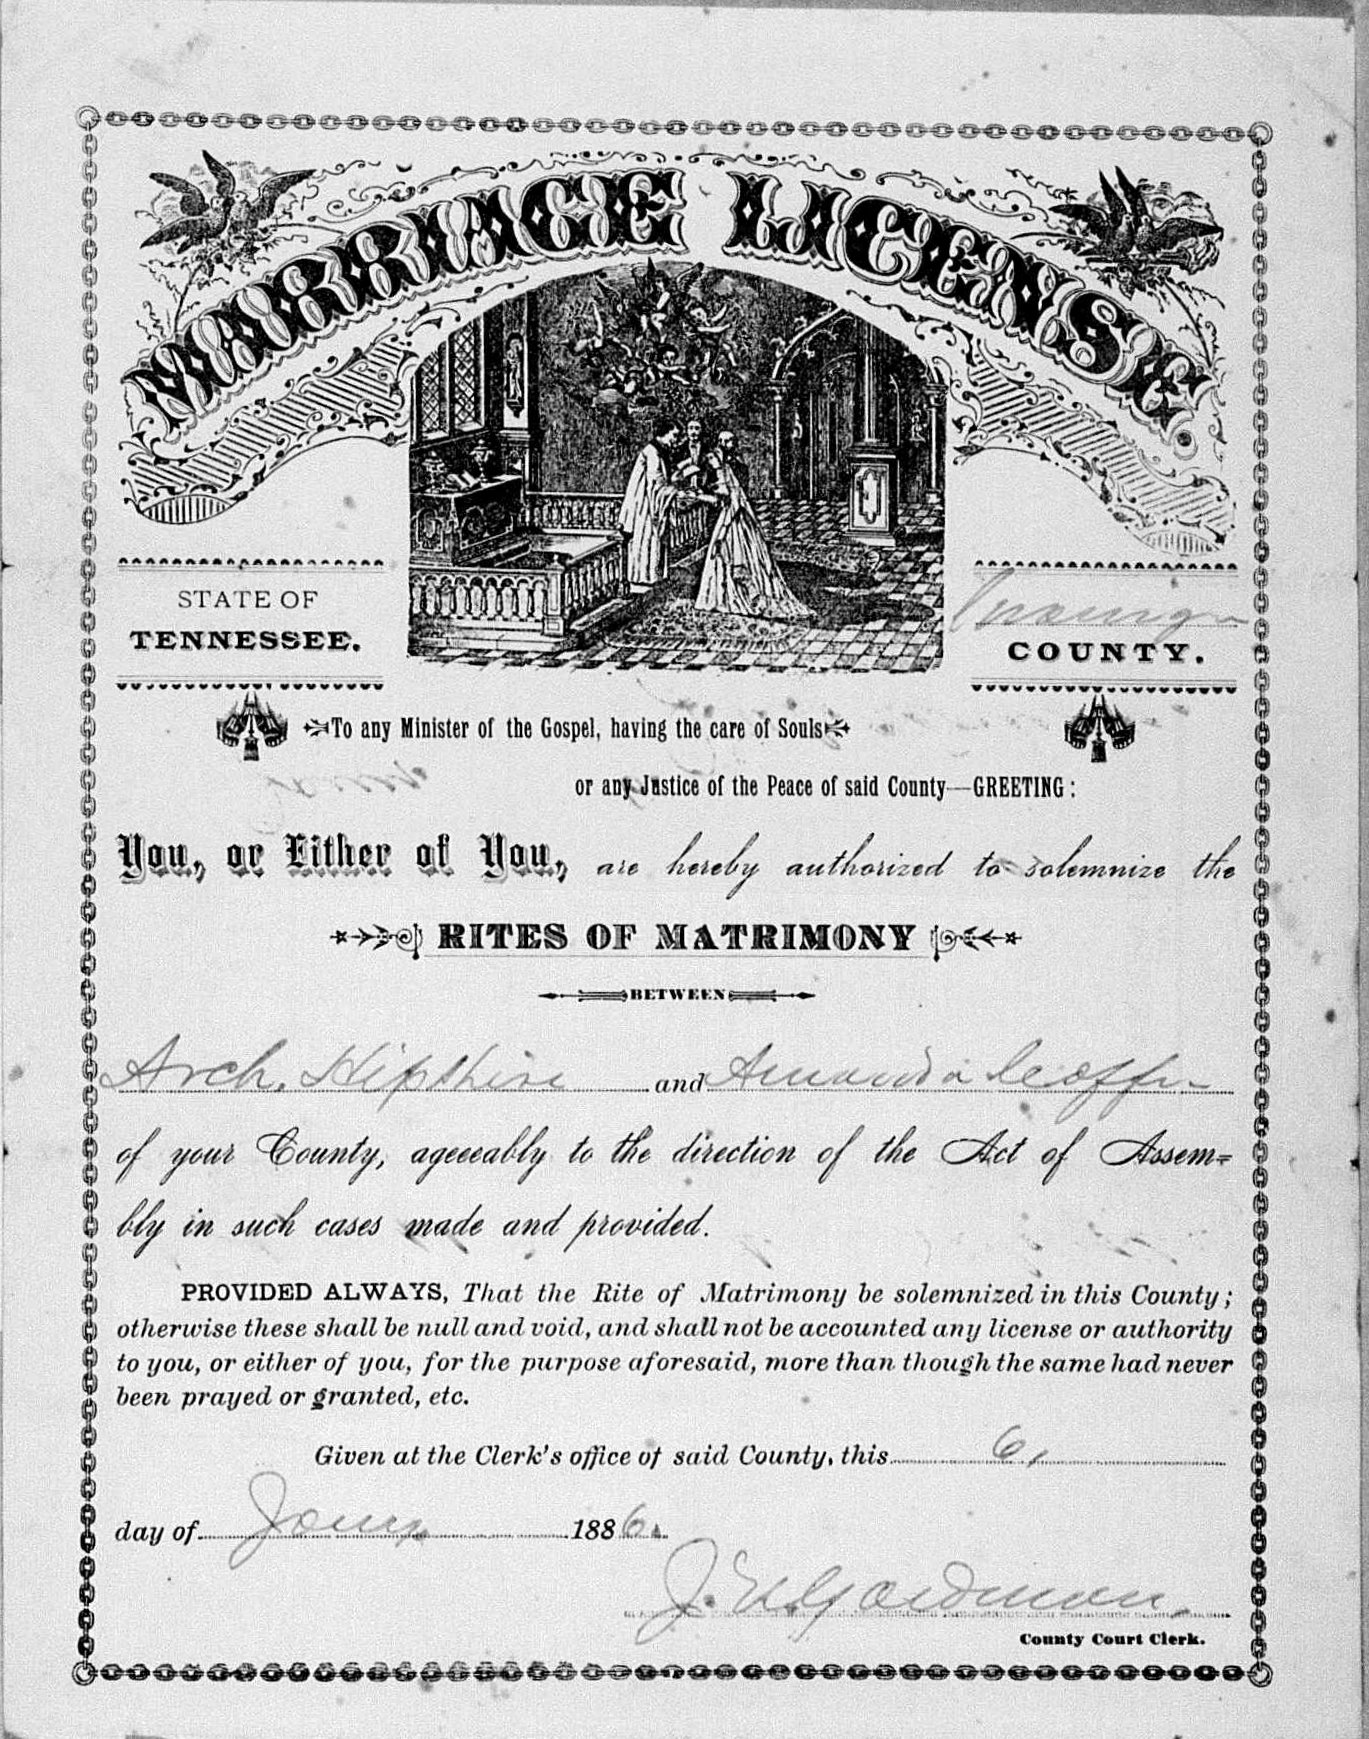 MARRIAGE LICENSE
STATE OF
TENNESSEE.
Grainger
COUNTY.
To any Minister of the Gospel, having the care of Souls
or any Justice of the Peace of said County—GREETING:
You, or Either of You, are hereby authorized to solemnize the
RITES OF MATRIMONY
BETWEEN
Arch. Hipshire and Amanda Coffy
of your County, ageeeably to the direction of the Act of Assem=
bly in such cases made and provided.
PROVIDED ALWAYS, That the Rite of Matrimony be solemnized in this County;
otherwise these shall be null and void, and shall not be accounted any license or authority
to you, or either of you, for the purpose aforesaid, more than though the same had never
been prayed or granted, etc.
Given at the Clerk's office of said County, this 6,
day of Jany 1886.
J. Goodman
County Court Clerk.